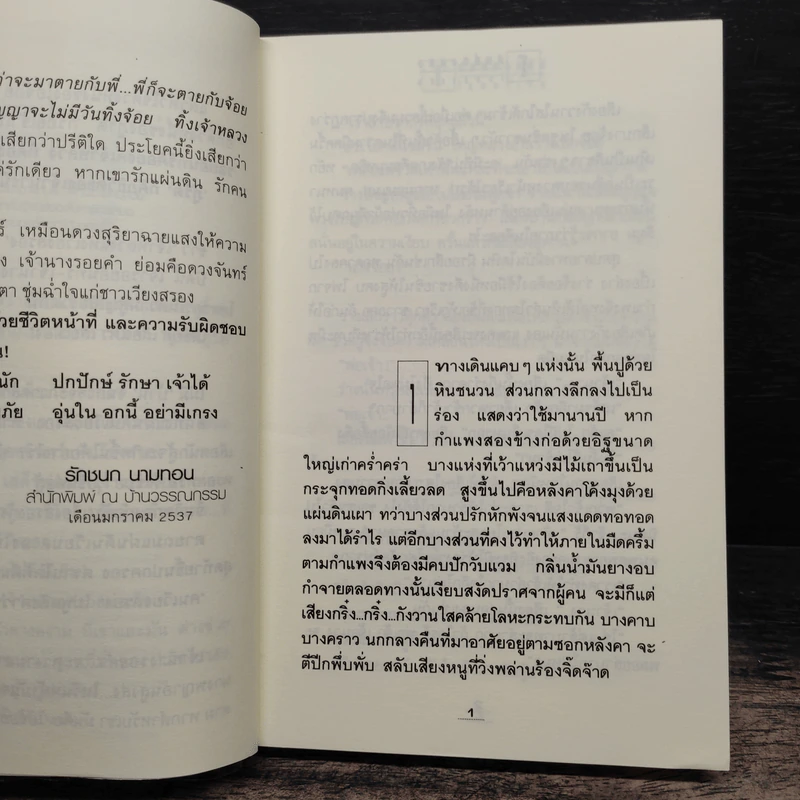 ว่าจะมาตายกับพี่...พี่ก็จะตายกับจ้อย
ญญาจะไม่มีวันทิ้งจ้อย ทิ้งเจ้าหลวง
เสียกว่าปรีติใด ประโยคนี้ยิ่งเสียกว่า
รักเดียว หากเขารักแผ่นดิน รักคน
เหมือนดวงสุริยาฉายแสงให้ความ
เจ้านางรอยคำ ย่อมคือดวงจันทร์
ตา ชุ่มฉ่ำใจแก่ชาวเวียงสรอง
วยชีวิตหน้าที่ และความรับผิดชอบ
น!
นัก ปกปักษ์ รักษา เจ้าได้
ภัย อุ่นใน อกนี้ อย่ามีเกรง
รักชนก นามทอน
สำนักพิมพ์ ณ บ้านวรรณกรรม
เดือนมกราคม 2537
๑
ทางเดินแคบๆ แห่งนั้น พื้นปูด้วย
หินชนวน ส่วนกลางลึกลงไปเป็น
ร่อง แสดงว่าใช้มานานปี หาก
กำแพงสองข้างก่อด้วยอิฐขนาด
ใหญ่เก่าคร่ำคร่า บางแห่งที่เว้าแหว่งมีไม้เถาขึ้นเป็น
กระจุกทอดกิ่งเลี้ยวลด สูงขึ้นไปคือหลังคาโค้งมุงด้วย
แผ่นดินเผา ทว่าบางส่วนปรักหักพังจนแสงแดดทอทอด
ลงมาได้รำไร แต่อีกบางส่วนที่คงไว้ทำให้ภายในมืดครึ้ม
ตามกำแพงจึงต้องมีคบปักวับแวม กลิ่นน้ำมันยางอบ
กำจายตลอดทางนั้นเงียบสงัดปราศจากผู้คน จะมีก็แต่
เสียงกริ๋ง...กริ๋ง...กังวานใสคล้ายโลหะกระทบกัน บางคาบ
บางคราว นกกลางคืนที่มาอาศัยอยู่ตามซอกหลังคา จะ
ตีปีกพึ่บพั่บ สลับเสียงหนูที่วิ่งพล่านร้องจี๊ดจ๊าด
1